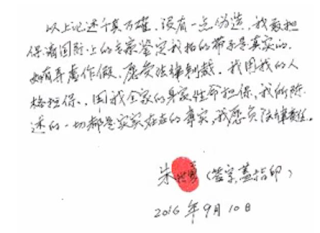 以上记述千真万确，没有一点伪造，我敢担
保请国际上的专家鉴定我拍的带子是真实的。
如有弄虚作假，愿受法律制裁。我用我的人
格担保、用我全家的身家性命担保，我所陈
述的一切都是实实存在的事实，我愿负法律责任。
朱 （签字盖指印）
2016年9月10日